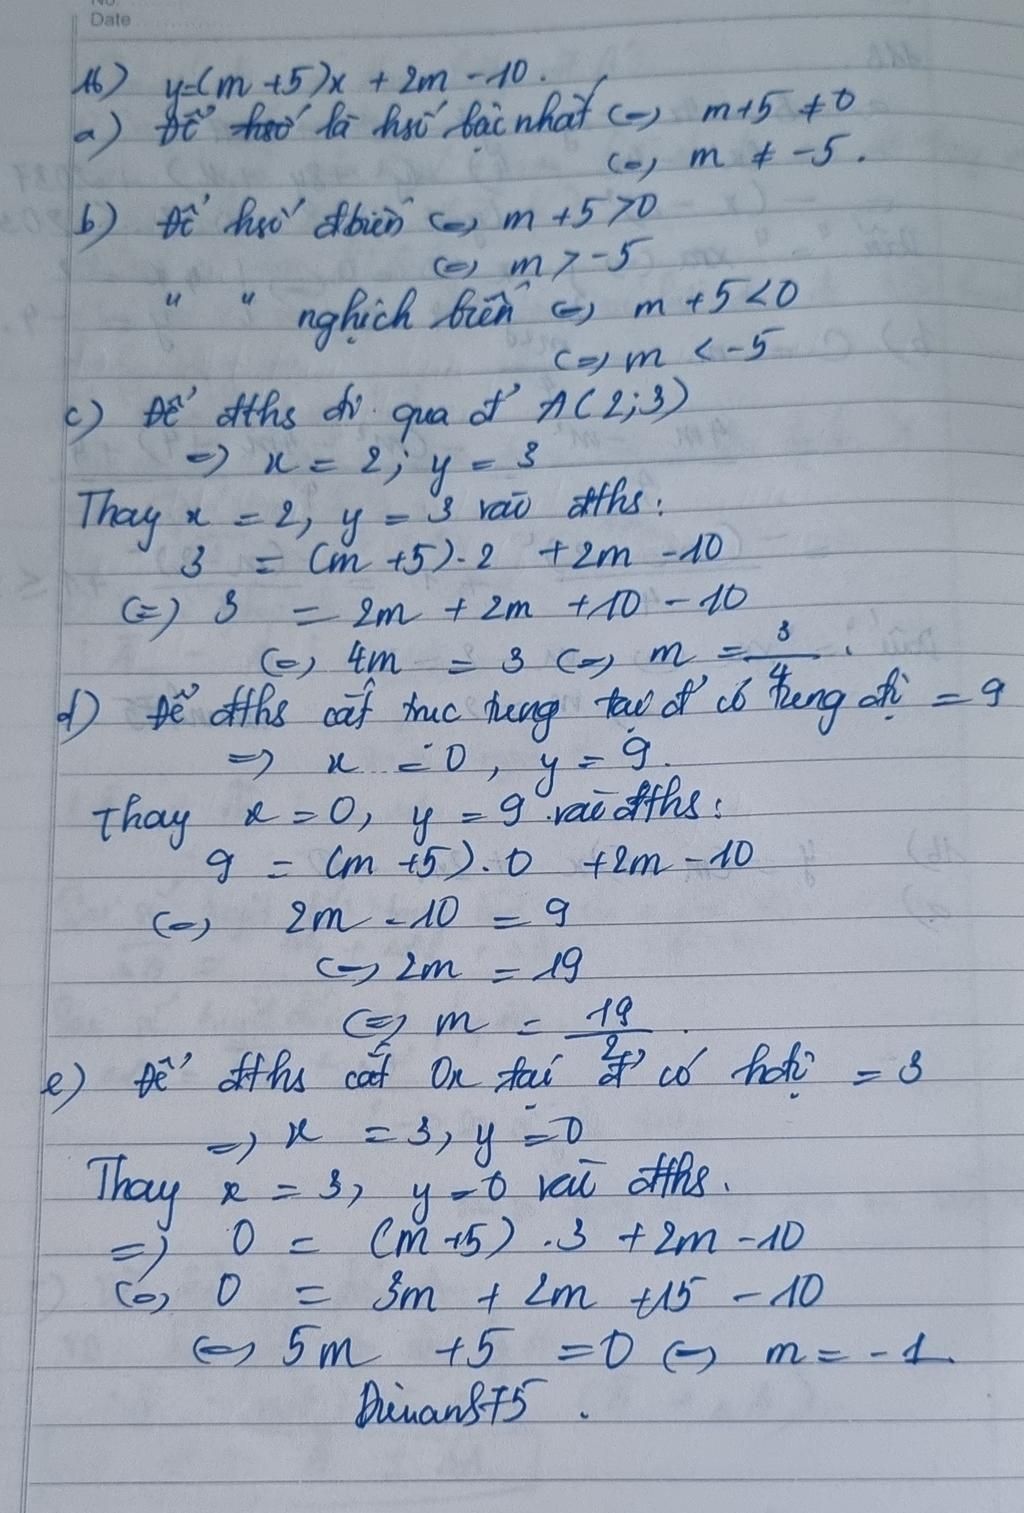 No.
Date
16) y=(m+5)x + 2m - 10.
a) Để hsố là hsố bậc nhất (=) m+5 ≠ 0
(=) m ≠ -5.
b) Để hsố đbiến (=) m+5>0
(=) m > -5
" " nghịch biến (=) m+5<0
(=) m < -5
c) Để đths đi qua đ' A(2;3)
=) x = 2; y = 3
Thay x = 2, y = 3 vào đths:
3 = (m+5).2 + 2m - 10
(=) 3 = 2m + 2m + 10 - 10
(=) 4m = 3 (=) m = 3/4.
d) Để đths cắt trục tung tại đ' có tung độ = 9
=) x = 0, y = 9.
Thay x = 0, y = 9 vào đths:
9 = (m+5).0 + 2m - 10
(=) 2m - 10 = 9
(=) 2m = 19
(=) m = 19/2.
e) Để đths cắt Ox tại đ' có hđộ = 3
=) x = 3, y = 0
Thay x = 3, y = 0 vào đths.
=) 0 = (m+5).3 + 2m - 10
(=) 0 = 3m + 2m + 15 - 10
(=) 5m + 5 = 0 (=) m = -1.